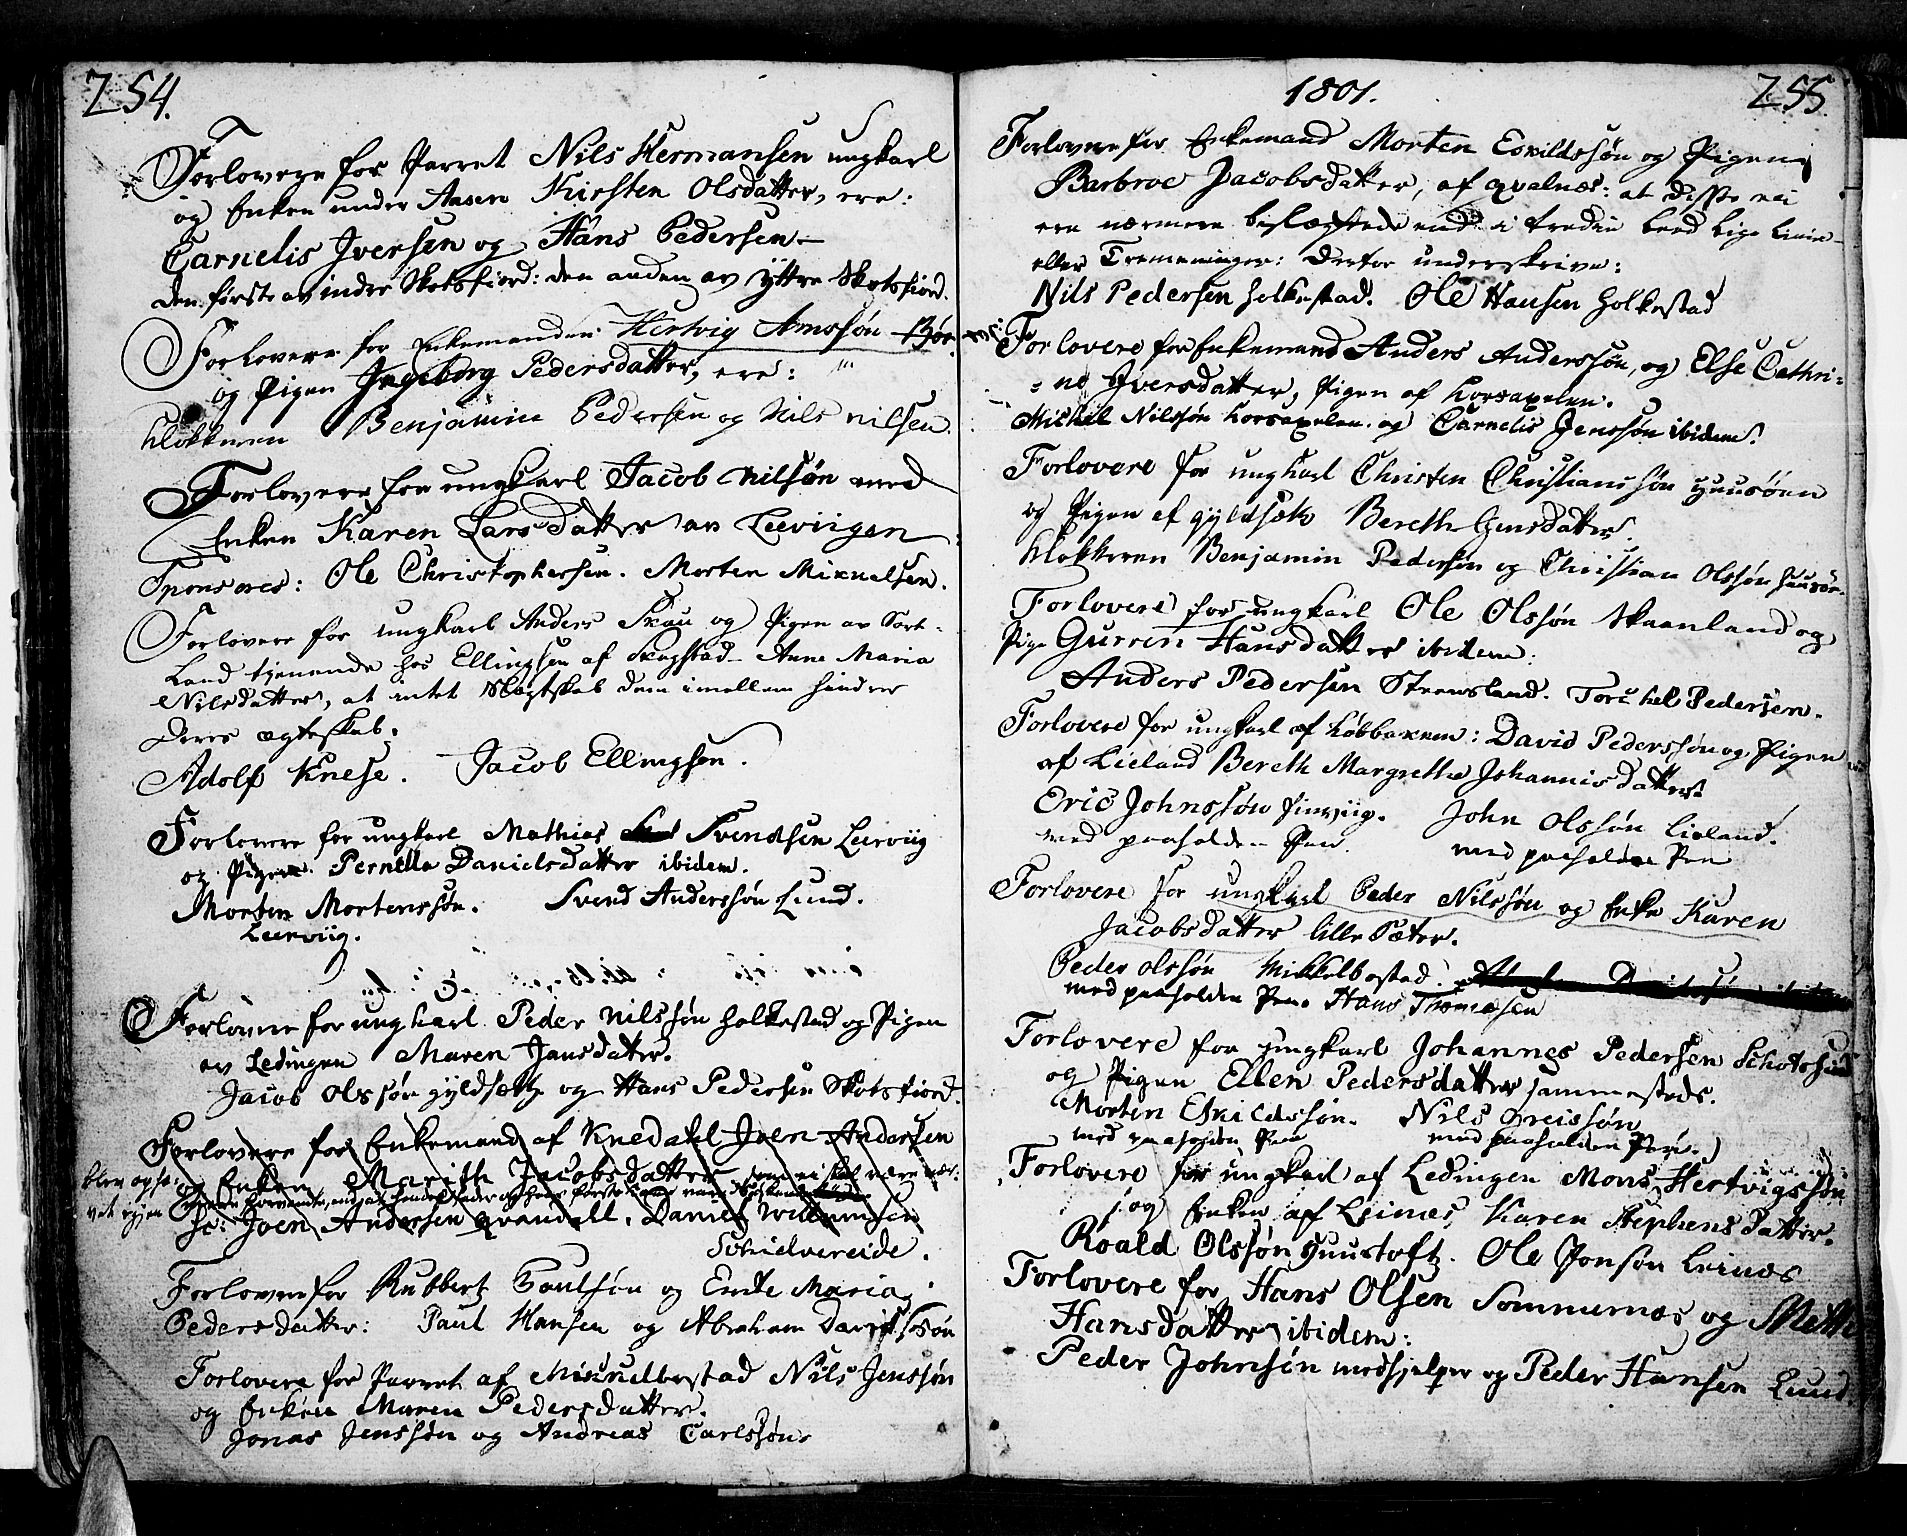 254.
Forlovere for Parret Nils Hermansen ungkarl
og Enken under Aasen Kirsten Olsdatter, ere:
Carnelis Iversen og Hans Pedersen
den første av indre Skotsfiord: den anden av yttre Skotsfiord.
Forlovere for Enkemanden Hertvig Amssøn
og Pigen Ingeborg Pedersdatter, ere:
klokkeren Benjamin Pedersen og Nils Nilsen.
Forlovere for ungkarl Jacob Nilsøn med
Enken Karen Larsdatter av Leerviigen
Sponsores: Ole Christophersen. Morten Mikkelsen.
Forlovere for ungkarl Anders Skau og Pigen av Sort-
land tjenende hos Ellingsen af Skagstad Anne Maria
Nilsdatter, at intet Slegtskab dem imellem hindrer
deres ægteskab.
Adolf Knese. Jacob Ellingsen.
Forlovere for ungkarl Mathias Svendsen Leerviig
og Pigen Pernella Danielsdatter ibidem.
Morten Mortenssøn. Svend Anderssøn Lund.
Leerviig.
Forlovere for ungkarl Peder Nilssøn Holkestad og Pigen
av Ledingen Maren Jansdatter.
Jacob Olssøn Gyldsætz og Hans Pedersen Skotsfiord.
Forlovere for Enkemand af Knedahl Joen Andersen
og Enken Marith Jacobsdatter som ei skal være nær-
blev ophæ-
vet igjen
sc: Joen Andersen Qvandall. Daniel Willumsen
Schielvereide.
Forlovere for Rubbert Poulsøn og Ente Maria
Pedersdatter: Paul Hansen og Abraham Davidssøn
Forlovere for Parret af Mikkelbostad Nils Jenssøn
og Enken Maren Pedersdatter.
Jonas Jenssøn og Andreas Carlssøn.
1801.
255.
Forlovere for Enkemand Morten Esvildssøn og Pigen
Barbroe Jacobsdatter, af Qvalnæs: at disse ei
ere nærmere beslægtede end i tredie Leed lige Linie
eller Tremeninger: derfor underskrive:
Nils Pedersen Holkestad. Ole Hansen Holkestad
Forlovere for Enkemand Anders Anderssøn, og Else Cathri-
=ne Iversdatter, Pigen af Korsaxelen.
Michel Nilssøn Korsaxelen og Carnelis Jenssøn ibidem.
Forlovere for ungkarl Christen Christianssøn Huusøen
og Pigen af Gyldsætz Bereth Jensdatter.
klokkeren Benjamin Pedersen og Christian Olssøn Huusøe.
Forlovere for ungkarl Ole Olssøn Skaanland og
Pige Gurren Hansdatter ibidem:
Anders Pedersen Strensland. Torchel Pedersen.
Forlovere for ungkarl af Løbbaxen: David Pederssøn og Pigen
af Lieland Bereth Margrethe Johannisdatter.
Eric Johnssøn Finviig. John Olssøn Lieland.
med paaholden Pen. med paaholden Pen
Forlovere for ungkarl Peder Nilssøn og Enke Karen
Jacobsdatter lille Pæter.
Peder Olssøn Mikkelbostad.
med paaholden Pen. Hans Thomesen
Forlovere for ungkarl Johannes Pedersen
og Pigen Ellen Pedersdatter sammesteds.
Morten Eskildssøn. Nils Greissøn
med paaholden Pen med paaholden Pen.
Forlovere for ungkarl af Ledingen Mons Hertvigssøn
og Enken af Leines, Karen Stephensdatter.
Roald Olssøn Huustoft. Ole Jonsøn Leines
Forlovere for Hans Olsen Sommernæs og Mette
Hansdatter ibidem:
Peder Johnsøn medhjelper og Peder Hansen Lund.